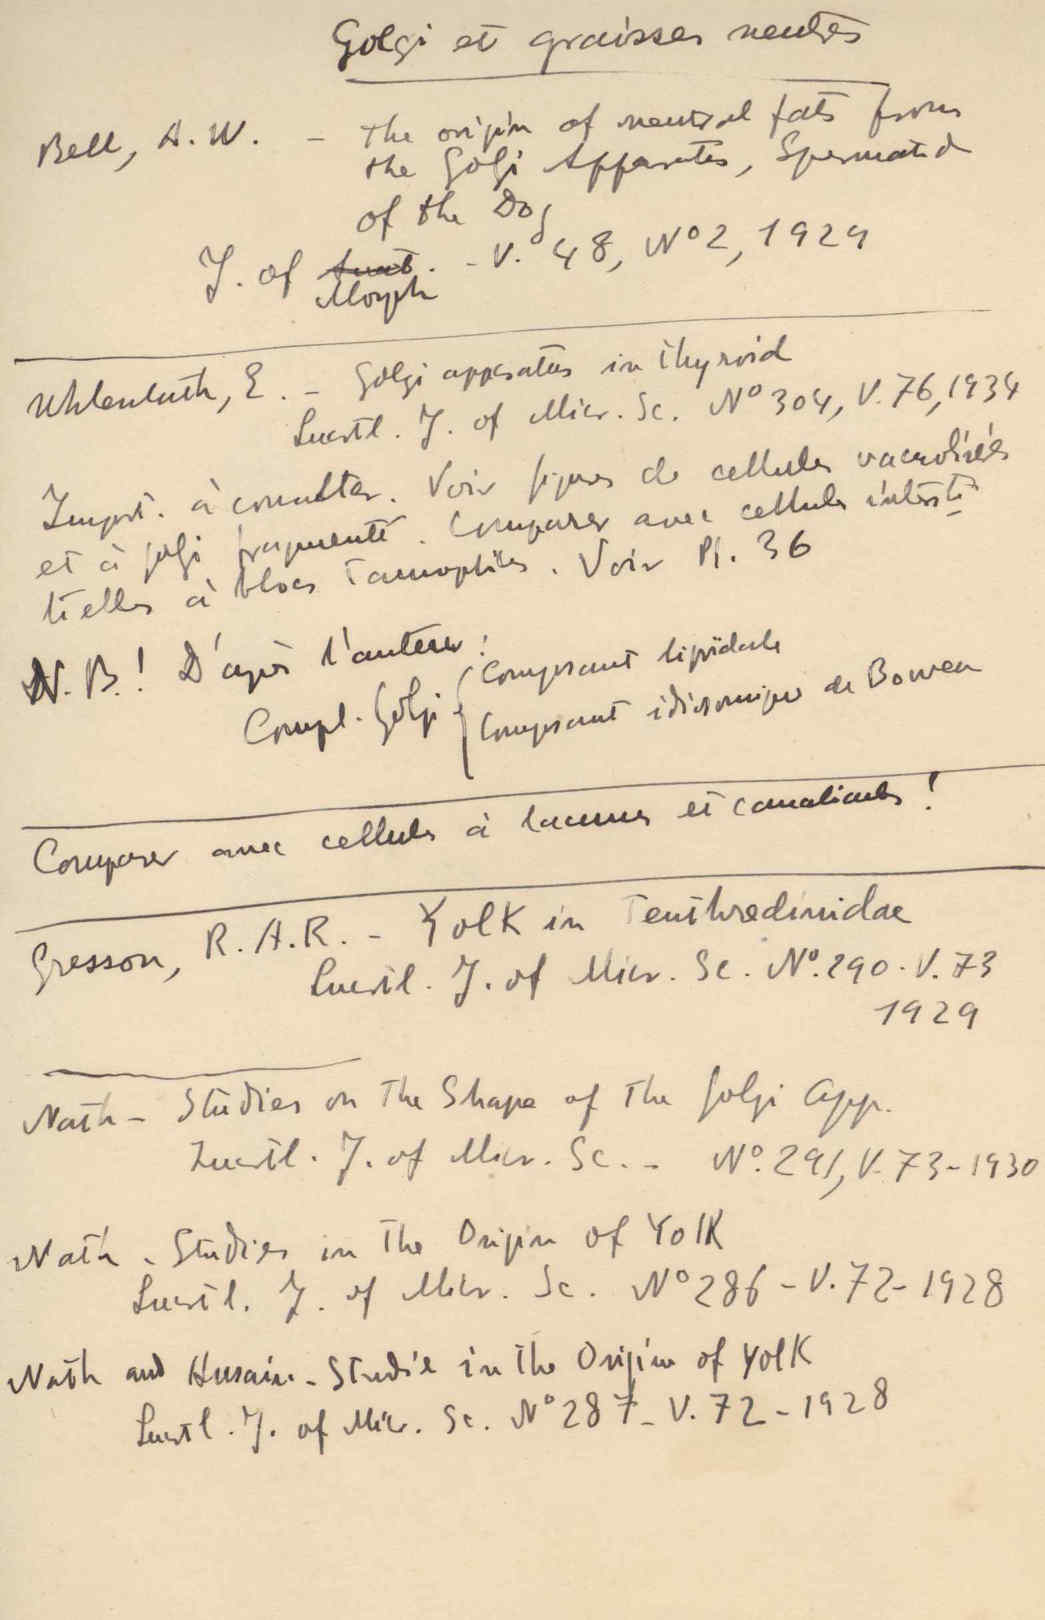 Golgi et graisses neutres
Bell, A. W. - The origin of neutral fats from
the Golgi Apparatus, Spermatid
of the Dog
J. of Anat. - V. 48, No 2, 1929
Morph
Uhlenhuth, E. - Golgi apparatus in Thyroid
Quartl. J. of Micr. Sc. No 304, V. 76, 1934
Import. à consulter. Voir figures de cellules vacuolisées
et à golgi fragmenté. Comparer avec cellules intersti-
tielles à blocs 
. Voir Pl. 36
N. B.! D'après l'auteur:
Compl. Golgi { Composant lipoïdale
Composant idiosomique de Bowen
Comparer avec cellules à lacunes et canalicules!
Gresson, R. A. R. - Yolk in Tenthredinidae
Quartl. J. of Micr. Sc. No. 290. V. 73
1929
Nath - Studies on The Shape of The Golgi App.
Quartl. J. of Micr. Sc. - No. 291, V. 73 - 1930
Nath - Studies in The Origin of Yolk
Quartl. J. of Micr. Sc. No 286 - V. 72 - 1928
Nath and Husain - Studie in The Origin of Yolk
Quartl. J. of Micr. Sc. No 287 - V. 72 - 1928